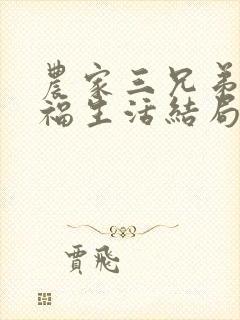 農家三兄弟
福生活結局
賈飛